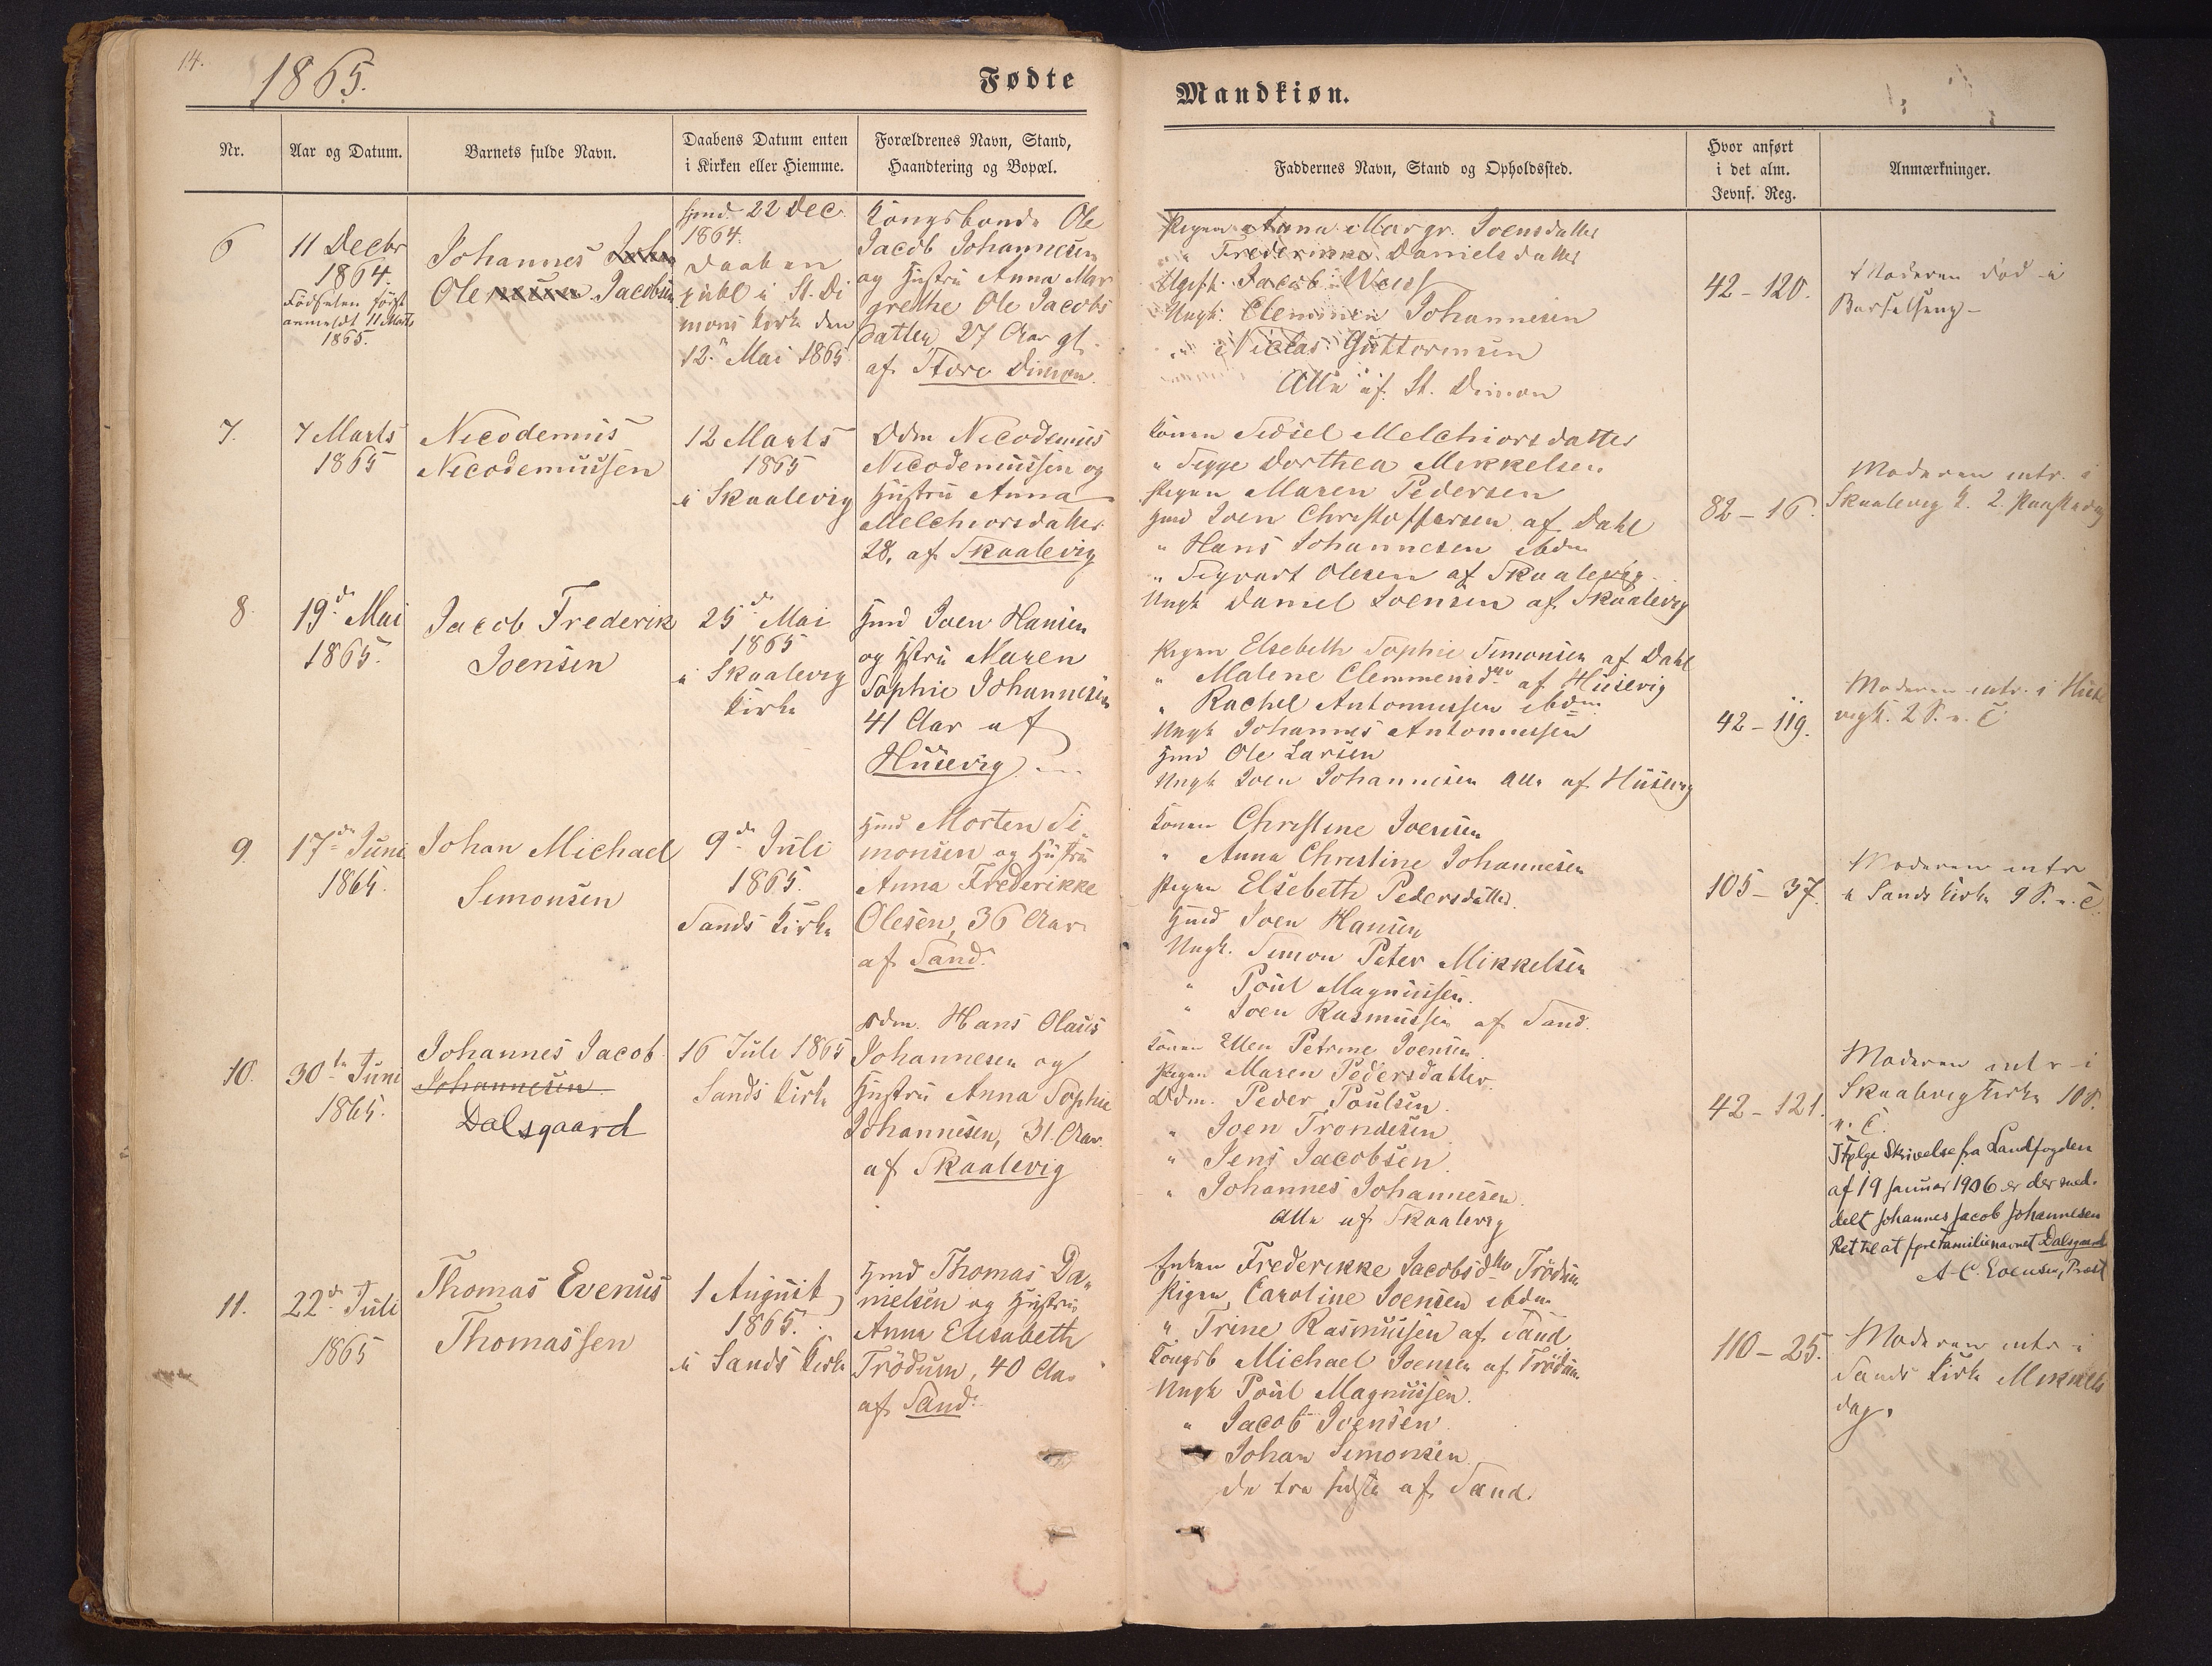 14.
1865.
Fødte
Mandkiøn.
Nr.
Aar og Datum.
Barnets fulde Navn.
Daabens Datum enten
i Kirken eller Hiemme.
Forældrenes Navn, Stand,
Haandtering og Bopæl.
Faddernes Navn, Stand og Opholdssted.
Hvor anført
i det alm.
Jevnf. Reg.
Anmærkninger.
6
11 Decbr
1864.
Födselen först
anmeldt 11 Marts
1865.
Johannes
Ole Jacobsen
hjmd. 22 Dec.
1864.
Daaben
publ i St. Di
mons Kirke den
12. Mai 1865
Kongsbonde Ole
Jacob Johannesen
og Hustru Anna Mar
grethe Ole Jacobs
datter, 27 Aar gl.
af Store Dimon.
Pigen Anna Margr. Joensdatter
" Danielsdatter
Jacob
Ungk. Clemmen Johannesen
" Niclas Guttormsen
Alle af St. Dimon
42 - 120.
Moderen död i
Barselseng -
7.
7 Marts
1865
Nicodemus
Nicodemussen
12 Marts
1865
i Skaalevig
Odm Nicodemus
Nicodemussen og
Hustru Anna
Melchiorsdatter
28, af Skaalevig
Konen Sidsel Melchiorsdatter
" Sigge Dorthea Mikkelsen
Pigen Maren Pedersen
Hmd Joen Christoffersen af Dahl
" Hans Johannesen ibdm
" Sigvart Olesen af Skaalevig
Ungk Daniel Joensen af Skaalevig
82 - 16.
Moderen intr. i
Skaalevig K. 2. Paaskedag
8.
19de Mai
1865.
Jacob Frederik
Joensen
25de Mai
1865
i Skaalevig
Kirke
Hmd Joen Hansen
og Hstru Maren
Sophie Johannesen
41 Aar af
Husevig
Pigen Elsebeth Sophie Simonsen af Dahl
" Malene Clemmensdtr af Husevig
" Rachel Antoniussen ibdm
Ungk Johannes Antoniussen
Hmd Ole Larsen
Ungk Joen Johannesen Alle af Husevig
42 - 119.
Moderen intr. i Huse
vig K. 2 S. e. T.
9
17de Juni
1865.
Johan Michael
Simonsen
9de Juli
1865.
Sands Kirke
Hmd Morten Si
monsen og Hustru
Anna Frederikke
Olesen, 36 Aar
af Sand.
Konen Christine Joensen
" Anna Christine Johannesen
Pigen Elsebeth Pedersdatter
Hmd Joen Hansen
Ungk. Simon Peter Mikkelsen
" Poul Magnussen.
" Joen Rasmussen af Sand.
105 - 37.
Moderen intr
i Sands Kirke 9 S. e. T.
10.
30te Juni
1865.
Johannes Jacob
Johannesen
Dalsgaard
16 Juli 1865
Sands Kirke
Odm. Hans Olaus
Johannesen og
Hustru Anna Sophie
Johannesen, 31 Aar
af Skaalevig
Konen Ellen Petrine Joensen
Pigen Maren Pedersdatter
Odm. Peder Poulsen.
" Joen Trondesen
" Jens Jacobsen.
" Johannes Johannesen.
Alle af Skaalevig
42 - 121.
Moderen intr i
Skaalevig Kirke 10 S.
e. T.
Ifølge Skrivelse fra Landfogden
af 19 Januar 1906 er der med-
delt Johannes Jacob Johannesen
Ret til at føre Familienavnet Dalsgaard
A. C. Evensen, Præst
11.
22de Juli
1865
Thomas Evenus
Thomassen
1 August
1865.
i Sands Kirke
Hmd Thomas Da„
nielsen og Hustru
Anna Elisabeth
Trödum, 40 Aar
af Sand.
Enken Frederikke Jacobsdtr Trödum
Pigen Caroline Joensen ibdm
" Trine Rasmussen af Sand
Kongsb Michael Joensen af Trödum
Ungk Poul Magnussen.
" Jacob Joensen
Johan Simonsen
de tre sidste af Sand.
110 - 25.
Moderen intr i
Sands Kirke Mikkels
dag.